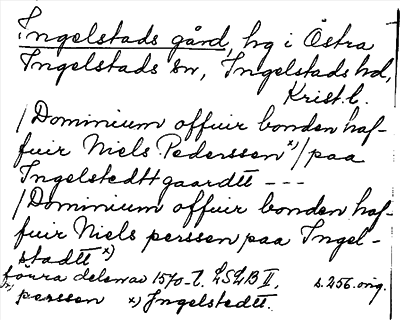 Ingelstads gård, hg i Östra
Ingelstads sn, Ingelstads hd,
Krist. l.
/Dominium offuir bonden haf-
fuir Niels Pederssen x)/ paa
Ingelstedtt gaardtt ---
/Dominium offuir bonden haf-
fuir Niels perssen paa Ingel-
stadtt x)
föura delenae 1570-t. LSLB II, s. 256. orig.
x) perssen x) Ingelstedtt.